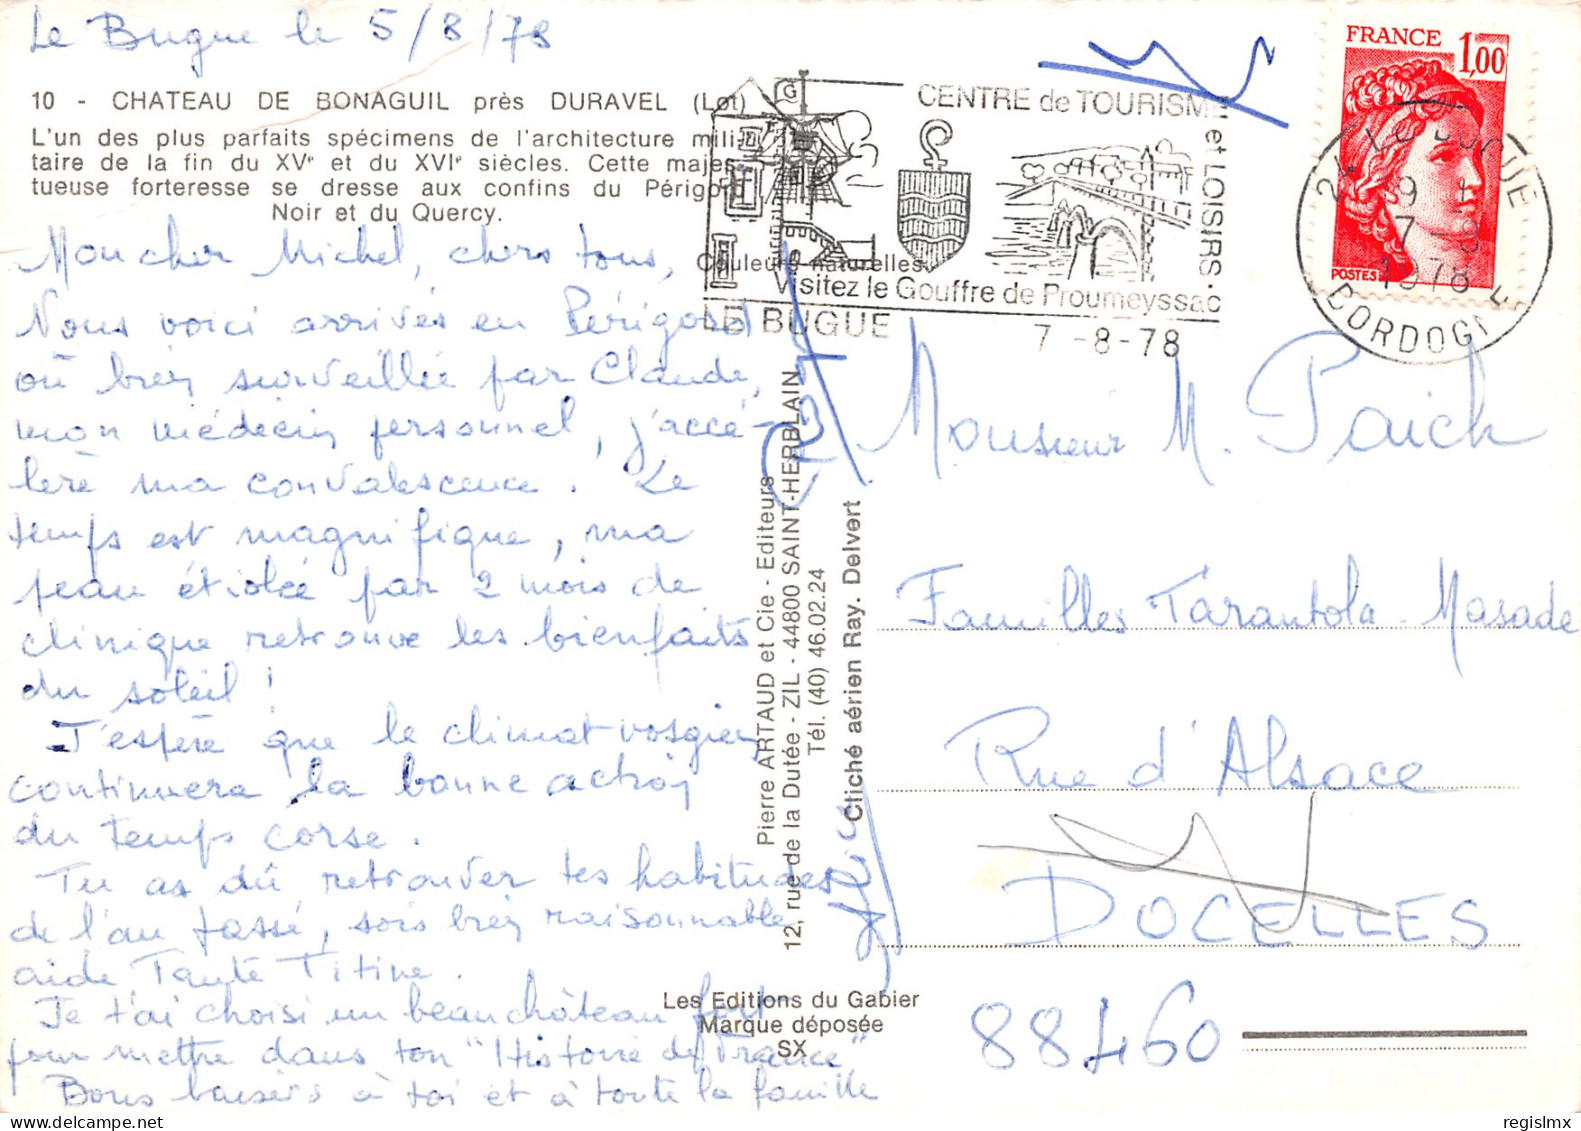 Le Bugue le 5/8/78
10 - CHATEAU DE BONAGUIL près DURAVEL (Lot)
L'un des plus parfaits spécimens de l'architecture mili-
taire de la fin du XVe et du XVIe siècles. Cette majes-
tueuse forteresse se dresse aux confins du Périgord
Noir et du Quercy.
Couleurs naturelles
Mon cher Michel, chers tous,
Nous voici arrivés en Périgord
où bien surveillée par Claude,
mon médecin personnel, j'accé-
lère ma convalescence. Le
temps est magnifique, ma
peau étiolée par 2 mois de
clinique retrouve les bienfaits
du soleil !
J'espère que le climat vosgien
continuera la bonne action
du temps corse.
Tu as dû retrouver tes habitudes
de l'an passé, sois bien raisonnable
aide Tante Titine.
Je t'ai choisi un beau château fort
pour mettre dans ton "Histoire de France"
Bons baisers à toi et à toute la famille
Pierre ARTAUD et Cie - Editeurs
12, rue de la Dutée - ZIL - 44800 SAINT-HERBLAIN
Tél. (40) 46.02.24
Cliché aérien Ray. Delvert
Les Editions du Gabier
Marque déposée
SX
CENTRE de TOURISME et LOISIRS
Visitez le Gouffre de Proumeyssac
LE BUGUE
7 -8-78
FRANCE 1,00
POSTES
24 LE BUGUE
7 - 8
1978
DORDOGNE
Monsieur M. Paich
Familles Tarantola-Masade
Rue d'Alsace
DOCELLES
88460
regislmx